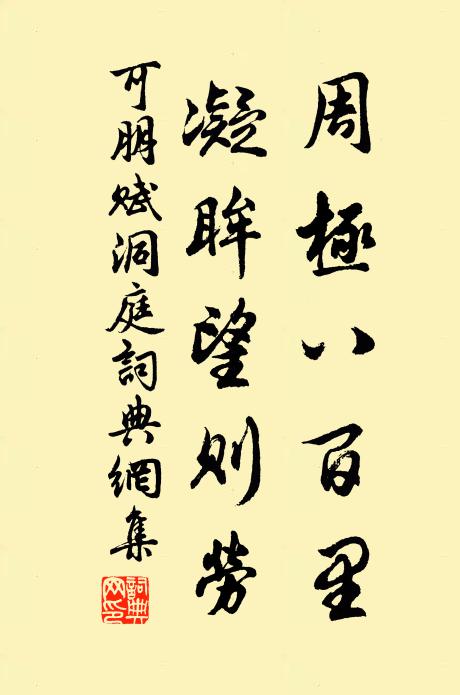 周極八百里
凝眸望則勞
可朋賦洞庭詞典網集
詞典网印